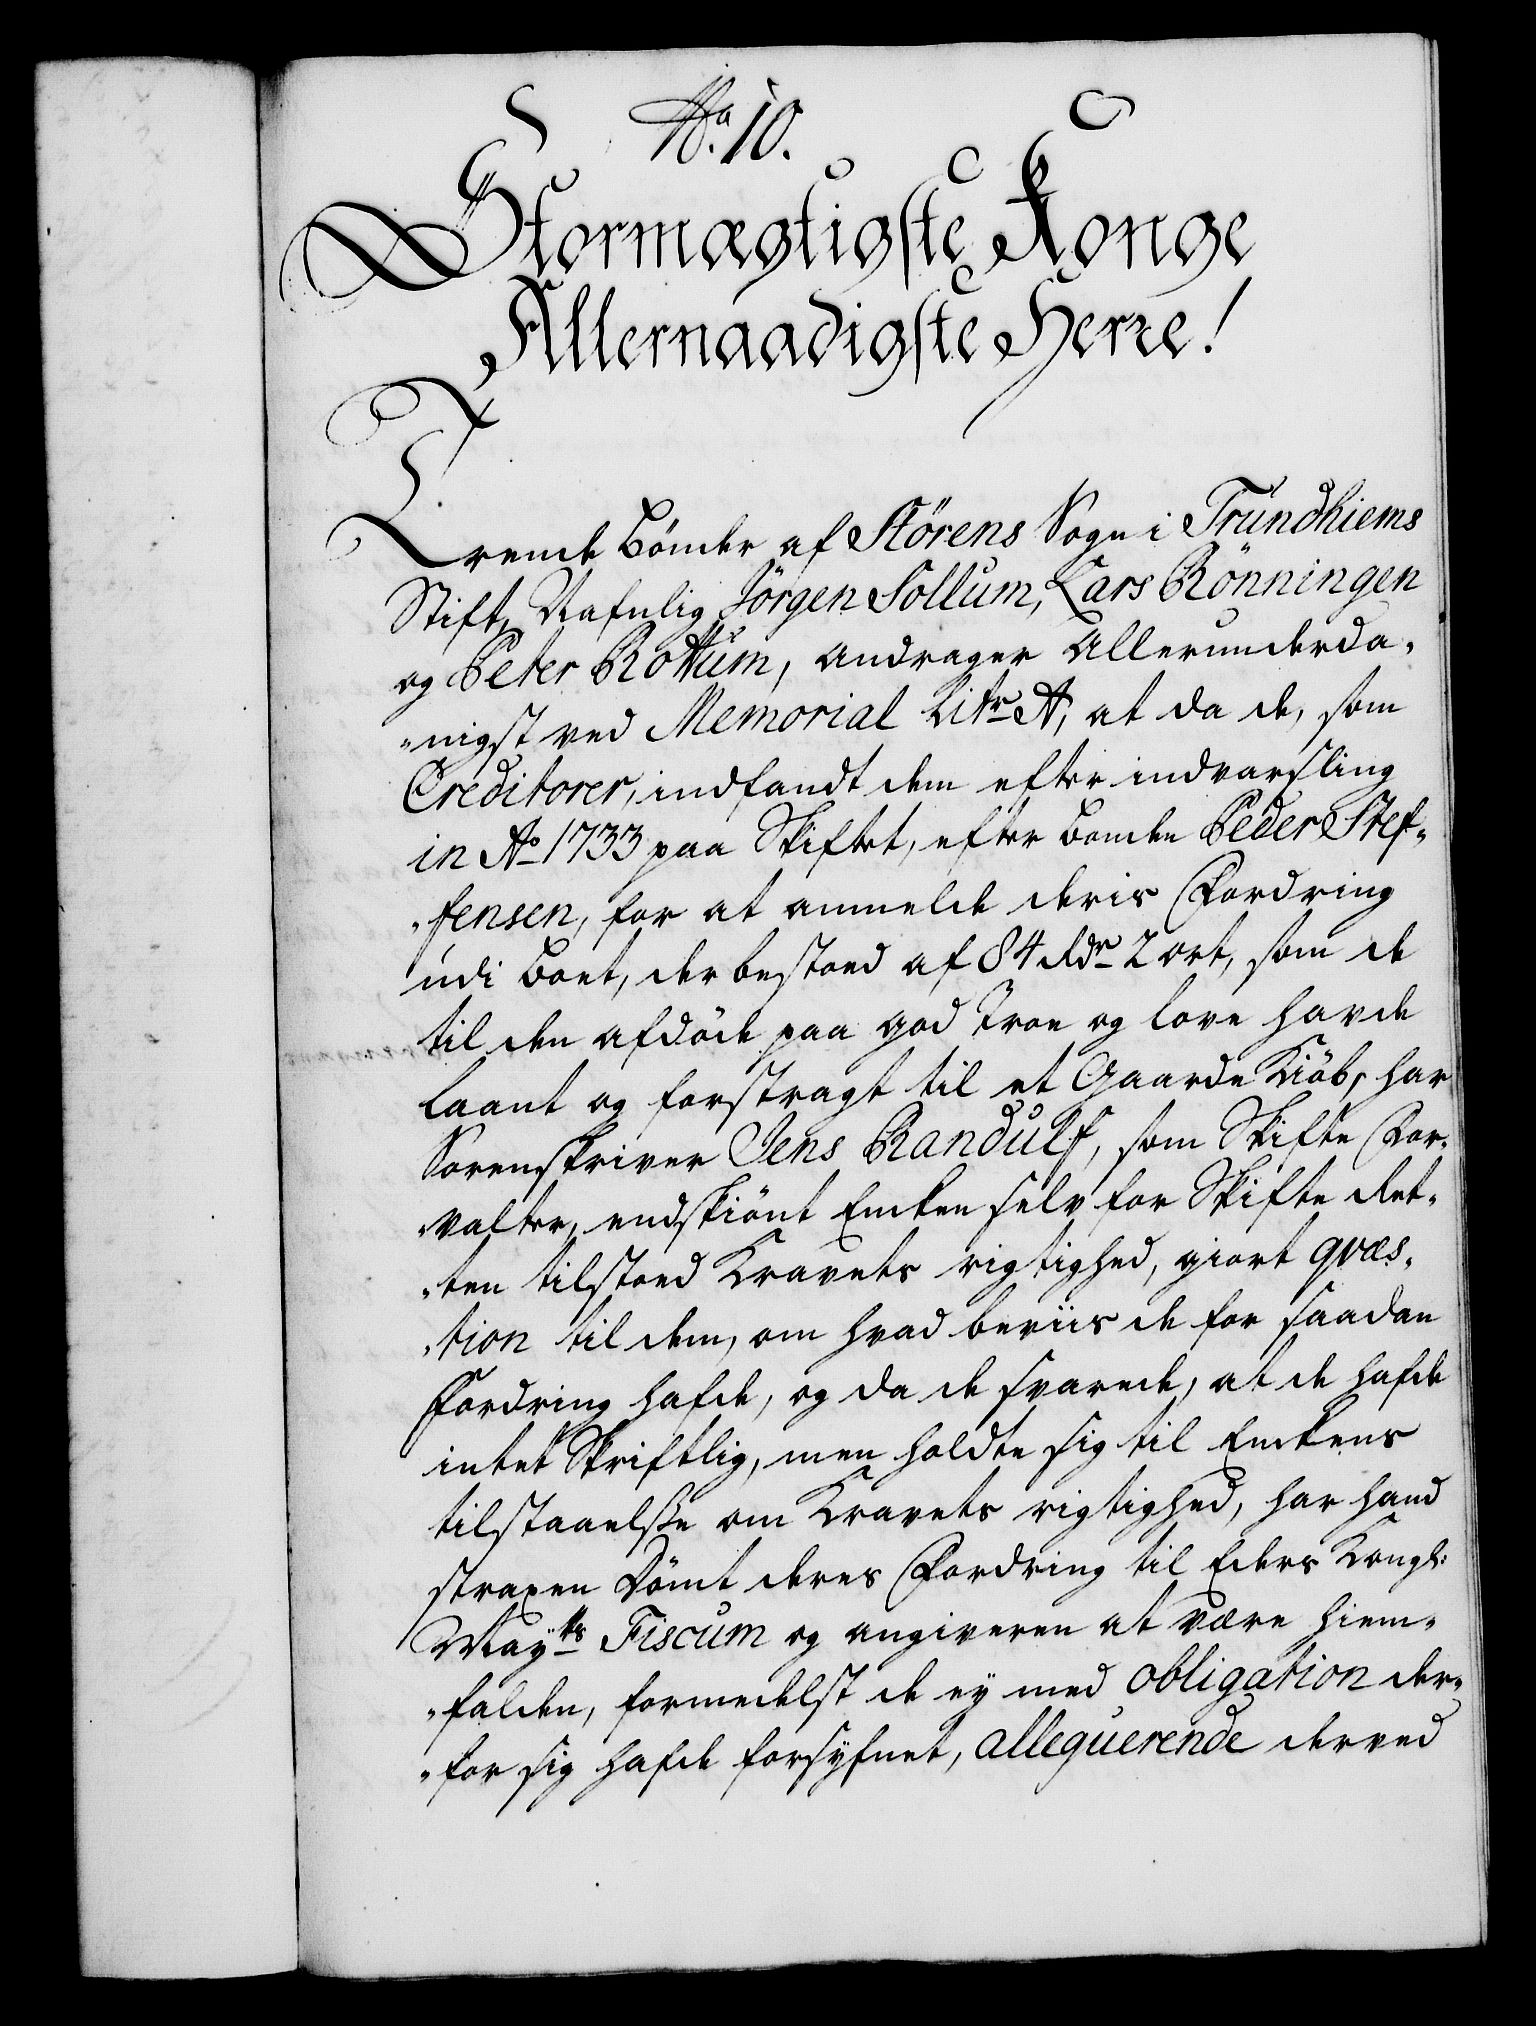 No. 10.
Stormægtigste Konge
Allernaadigste Herre!
Trende bønder af Störens Sogn i Trundhiems
Stift, Nafnlig Jörgen Sollum, Lars Rönningen
og Peter Rottum, andrager allerunderda-
-nigst ved Memorial Litr A, at da de, som
Creditorer, indfandt dem efter indvarsling
in Ao 1733 paa Skiftet, efter bonden Peder Stef-
-fensen, for at anmelde deris Fordring
udi boet, der bestoed af 84 rdr 2 ort, som de
til den afdöde paa god troe og love havde
laant og forstragt til et Gaarde Kiöb, har
Sorenskriver Jens Randulf, som Skifte For-
-valter, endskiönt Enken selv for Skifte Ret-
-ten tilstoed Kravets rigtighed, giort qvæs-
-tion til dem, om hvad beviis de for saadan
Fordring hafde, og da de svarede, at de hafde
intet Skriftlig, men holdte sig til Enkens
tilstaaelse om Kravets rigtighed, har hand
straxen Dömt deres Fordring til Eders Kongl:
Mayts Fiscum og angiveren at være hiem-
-falden, formedelst de ey med obligation der-
-for sig hafde forsÿfnet, alleguerende derved